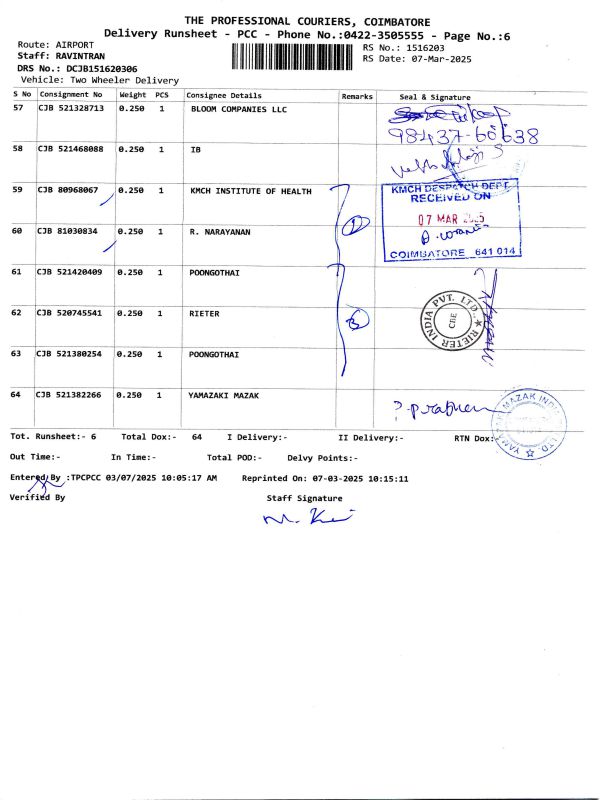 THE PROFESSIONAL COURIERS, COIMBATORE
Delivery Runsheet - PCC - Phone No.:0422-3505555 - Page No.:6
Route: AIRPORT
Staff: RAVINTRAN
DRS No.: DCJB151620306
Vehicle: Two Wheeler Delivery
RS No.: 1516203
RS Date: 07-Mar-2025
S No Consignment No Weight PCS Consignee Details Remarks Seal & Signature
57 CJB 521328713 0.250 1 BLOOM COMPANIES LLC
98437-60638
58 CJB 521468088 0.250 1 IB
59 CJB 80968067 0.250 1 KMCH INSTITUTE OF HEALTH
KMCH DESPATCH DEPT.
RECEIVED ON
07 MAR 2025
COIMBATORE 641 014
60 CJB 81030834 0.250 1 R. NARAYANAN
61 CJB 521420409 0.250 1 POONGOTHAI
62 CJB 520745541 0.250 1 RIETER
RIETER INDIA PVT. LTD.
CBE
63 CJB 521380254 0.250 1 POONGOTHAI
64 CJB 521382266 0.250 1 YAMAZAKI MAZAK
YAMAZAKI MAZAK INDIA LTD.
Tot. Runsheet:- 6 Total Dox:- 64 I Delivery:- II Delivery:- RTN Dox:
Out Time:- In Time:- Total POD:- Delvy Points:-
Entered By :TPCPCC 03/07/2025 10:05:17 AM Reprinted On: 07-03-2025 10:15:11
Verified By Staff Signature